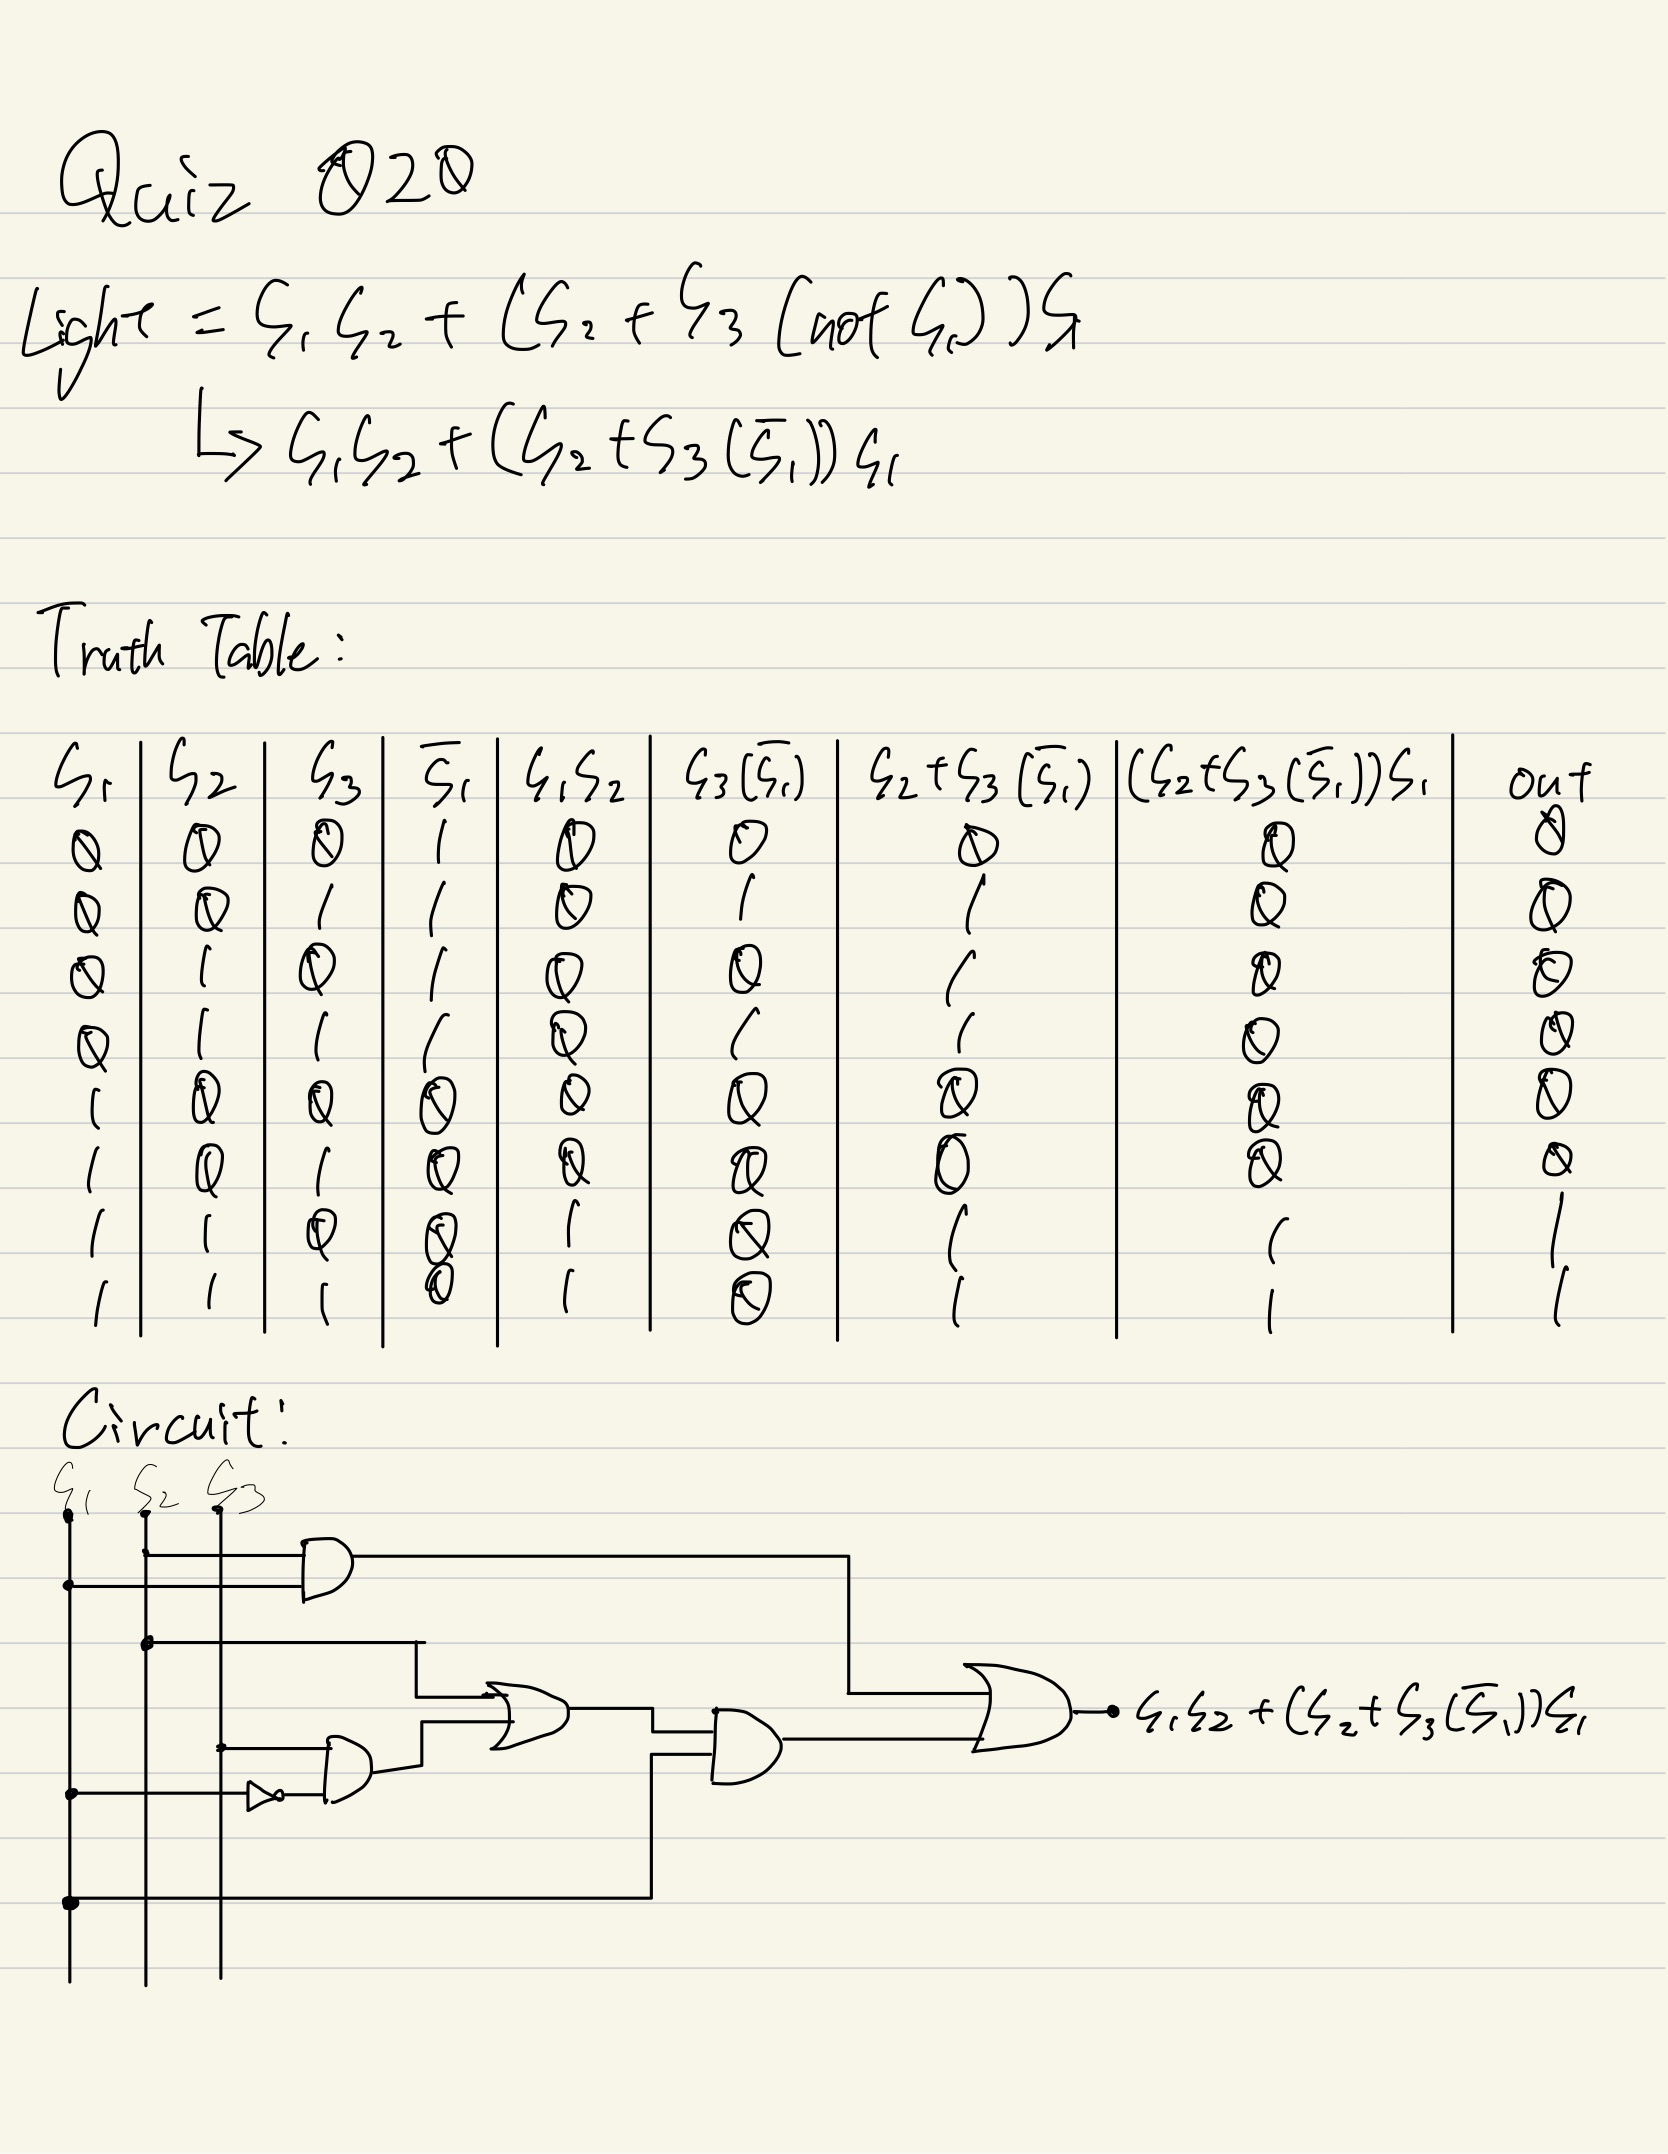 Quiz 020
Light = S₁S₂ + (S₂ + S₃ (not S₁))S₁
↳ S₁S₂ + (S₂ + S₃(S̅₁))S₁
Truth Table:
S₁ S₂ S₃ S̅₁ S₁S₂ S₃(S̅₁) S₂+S₃(S̅₁) (S₂+S₃(S̅₁))S₁ out
0 0 0 1 0 0 0 0 0
0 0 1 1 0 1 1 0 0
0 1 0 1 0 0 1 0 0
0 1 1 1 0 1 1 0 0
1 0 0 0 0 0 0 0 0
1 0 1 0 0 0 0 0 0
1 1 0 0 1 0 1 1 1
1 1 1 0 1 0 1 1 1
Circuit:
S₁ S₂ S₃
S₁S₂ + (S₂ + S₃(S̅₁))S₁